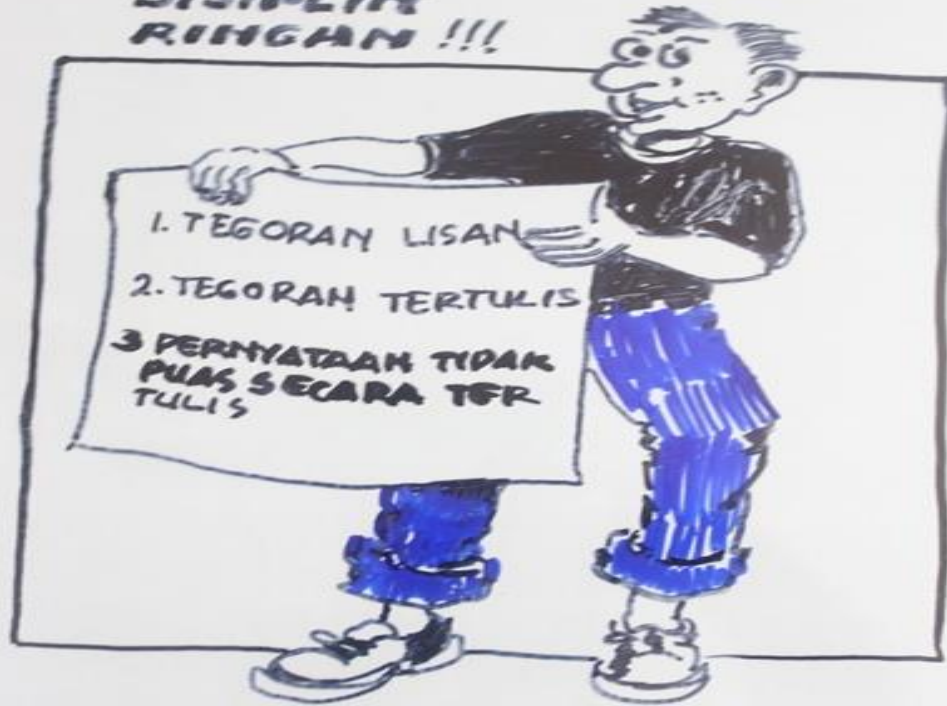 DISIPLIN
RINGAN !!!
1. TEGORAN LISAN
2. TEGORAN TERTULIS
3 PERNYATAAN TIDAK
PUAS SECARA TER
TULIS